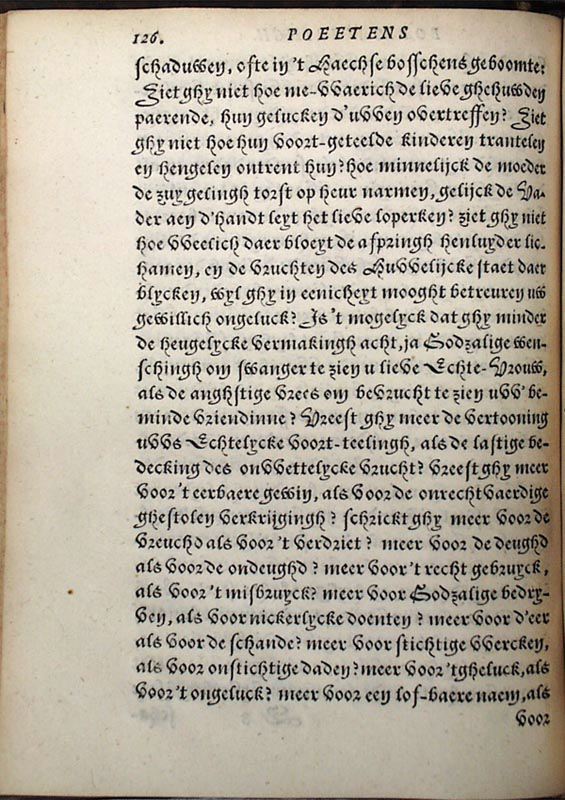 126. POEETENS
schaduwen, ofte in 't Haechse bosschens geboomte:
Ziet ghy niet hoe me-vvaerich de lieve ghehuwden
paerende, hun gelucken d'uvven overtreffen? Ziet
ghy niet hoe hun voort-geteelde kinderen trantelen
en hengelen ontrent hun? hoe minnelijck de moeder
de zuygelingh torst op heur narmen, gelijck de Va-
der aen d'handt leyt het lieve loperken? ziet ghy niet
hoe vveelich daer bloeyt de afpringh henluyder lic-
hamen, en de vruchten des Huvvelijcke staet daer
blycken, wyl ghy in eenicheyt mooght betreuren uw
gewillich ongeluck? Is 't mogelyck dat ghy minder
de heugelycke vermakingh acht, ja Godzalige wen-
schingh om swanger te zien u lieve Echte-Vrouw,
als de anghstige vrees om bevrucht te zien uvv' be-
minde vriendinne? Vreest ghy meer de vertooning
uvvs Echtelycke voort-teelingh, als de lastige be-
decking des onvvettelycke vrucht? vreest ghy meer
voor 't eerbaere gewin, als voor de onrechtvaerdige
ghestolen verkrijgingh? schrickt ghy meer voor de
vreuchd als voor 't verdriet? meer voor de deughd
als voor de ondeughd? meer voor 't recht gebruyck,
als voor 't misbruyck? meer voor Godzalige bedry-
ven, als voor nickerlycke doenten? meer voor d'eer
als voor de schande? meer voor stichtige vvercken,
als voor onstichtige daden? meer voor 'tgheluck, als
voor 't ongeluck? meer voor een lof-baere naem, als
voor